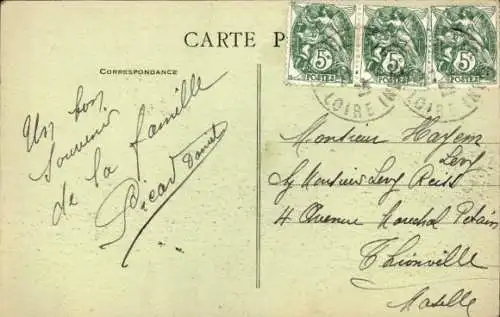 CARTE P
5c 5c 5c
POSTES POSTES POSTES
LOIRE IN LOIRE IN
CORRESPONDANCE
Un bon
souvenir
de la famille
Picard Daniel
Monsieur Hayem
Levy
c/ Monsieur Levy Reiss
4 Avenue Maréchal Petain
Thionville
Moselle